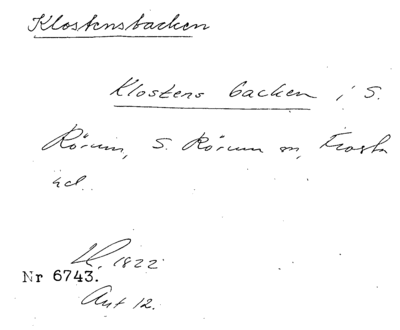 Klostensbacken
Klostens backen i S.
Rörum, S. Rörum sn, Frosta
hd.
LK. 1822
Nr 6743.
Akt 12.